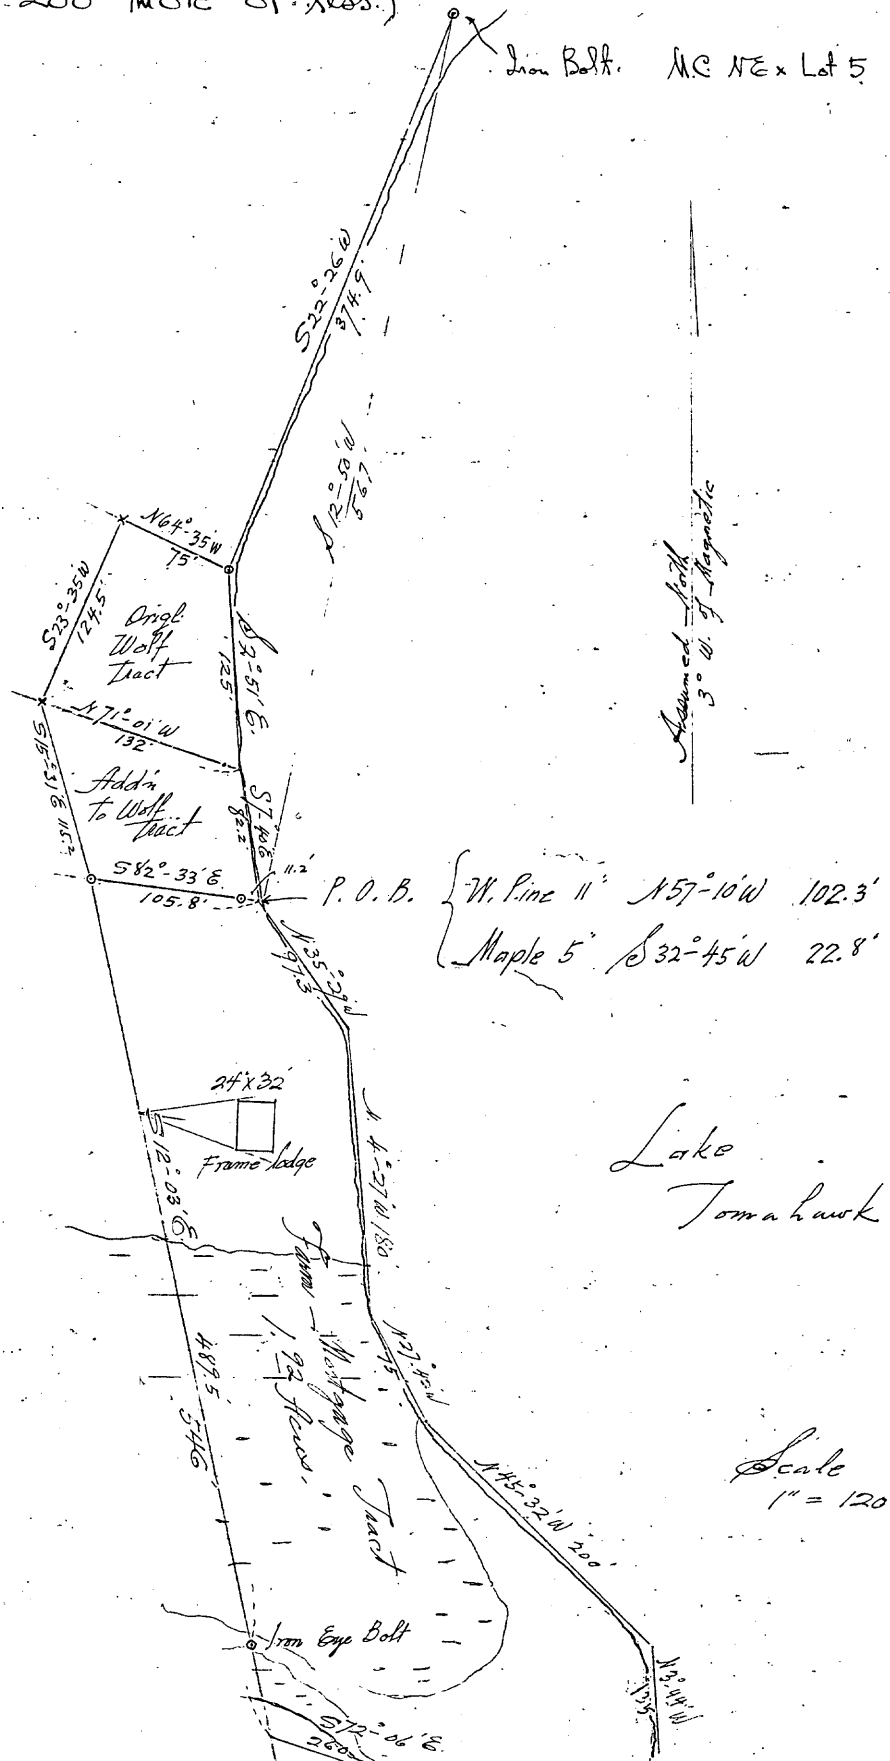 200 more or less.)
Iron Bolt. M.C. NE x Lot 5
S22°-26'W
374.9'
S12°-50'W
567'
Assumed North
3° W. of Magnetic
N64°-35'W
75'
S23°-35'W
124.5'
Origl.
Wolf
Tract
S2°-51'E.
125'
N71°-01'W
132'
S15°-31'E 115.2
Add'n
To Wolf
Tract
82.2
S82°-33'E.
105.8'
11.2'
P.O.B.
W. Pine 11" N57°-10'W 102.3'
Maple 5" S32°-45'W 22.8'
N35°-29'W
97.3
24'x32'
Frame lodge
S12°-03'E
N4°-27'W 180'
Lake
Tomahawk
Mortgage Tract
1.92 Acres.
487.5'
546
75
N45°-32'W 200'
Scale
1" = 120
Iron Eye Bolt
N3°-44'W
S72°-06'E.